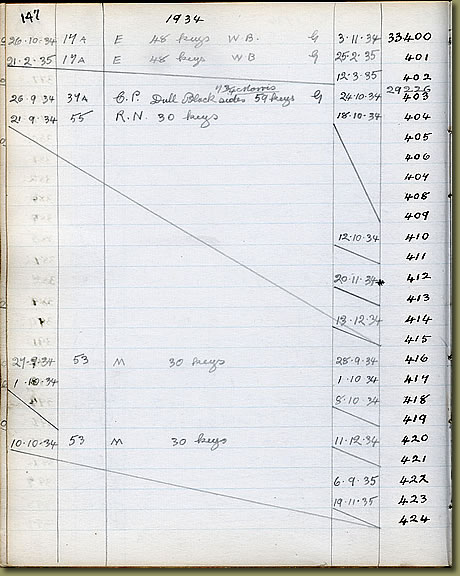 147 1934
26·10·34 17A E 48 keys W.B. G 3·11·34 33400
21·2·35 17A E 48 keys WB G 25·2·35 401
12·3·35 402
29226
26·9·34 37A C.P. Dull Black sides 59 keys G 24·10·34 403
21 9·34 55 R.N. 30 keys 18·10·34 404
405
406
407
408
409
12·10·34 410
411
20·11·34 412
413
13·12·34 414
415
27·9·34 53 M 30 keys 28·9·34 416
1·10·34 1·10·34 417
5·10·34 418
419
10·10·34 53 M 30 keys 11·12·34 420
421
6·9·35 422
19·11·35 423
424